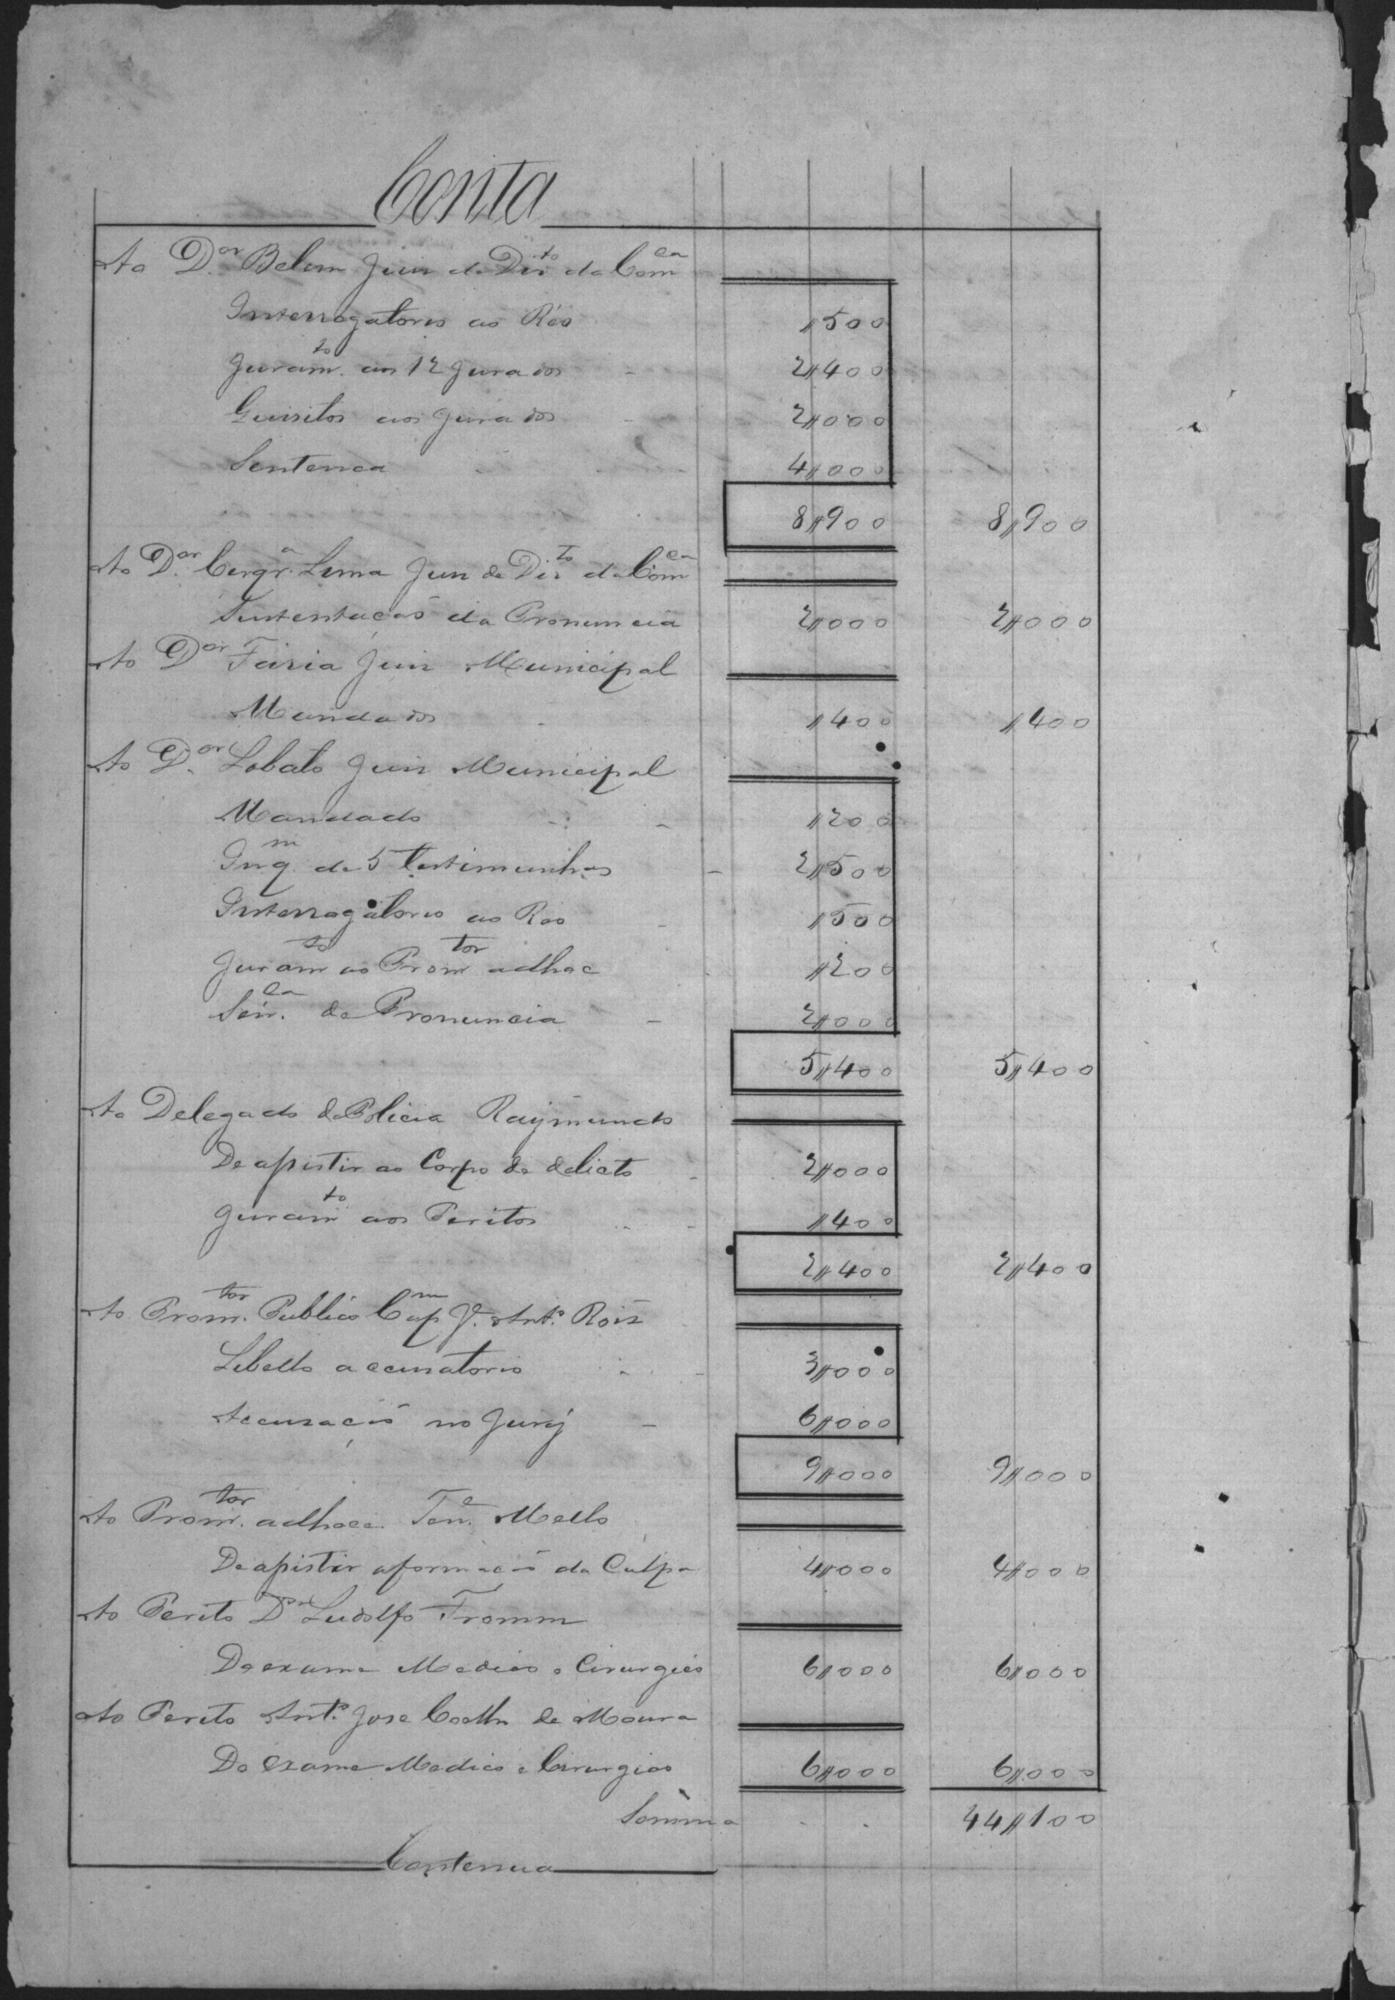 Conta
Ao D.or Belem Juiz de Dir.to da Com.ca
Interrogatorio ao Réo 〃500
Juram.to aos 12 Jurados 2〃400
Quisitos aos Jurados 2〃000
Sentença 4〃000
8〃900 8〃900
Ao D.or Cerqr.a Lima Juiz de Dir.to da Com.ca
Sustentação da Pronuncia 2〃000 2〃000
Ao D.or Faria Juiz Municipal
Mandados 〃400 〃400
Ao D.or Lobato Juiz Municipal
Mandado 〃200
Inq.m de 5 testimunhas 2〃500
Interrogatorio ao Reo 〃500
Juram.to ao Prom.tor adhoc 〃200
Sen.ca de Pronuncia 2〃000
5〃400 5〃400
Ao Delegado da Policia Raymundo
De assistir ao Corpo de delicto 2〃000
Juram.to aos Peritos 〃400
2〃400 2〃400
Ao Prom.tor Publico Cap.m J. Ant.o Roiz
Libello accusatorio 3〃000
Accusação no Jury 6〃000
9〃000 9〃000
Ao Prom.tor adhoc Ten.e Mello
De assistir a formação da Culpa 4〃000 4〃000
Ao Perito D.or Ludolfo Fromm
De exame Medico e Cirurgico 6〃000 6〃000
Ao Perito Ant.o Jose Coelho de Moura
De exame Medico e Cirurgico 6〃000 6〃000
Somma 44〃100
Contenua